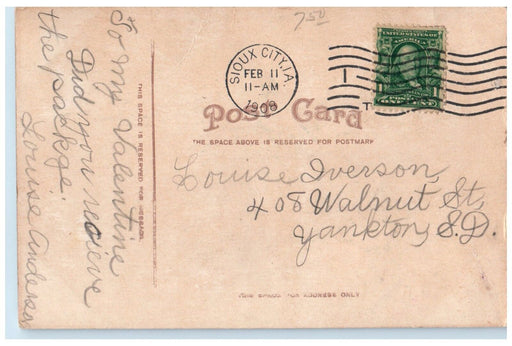 7.50
SIOUX CITY, IA.
FEB 11
11-AM
1908
1
UNITED STATES OF AMERICA
Post Card
THE SPACE ABOVE IS RESERVED FOR POSTMARK
To my Valentine
Did you recieve
the packge.
Louise Anderson
THIS SPACE IS RESERVED FOR MESSAGE
Louise Iverson,
408 Walnut St,
Yankton, S.D.
THIS SPACE FOR ADDRESS ONLY